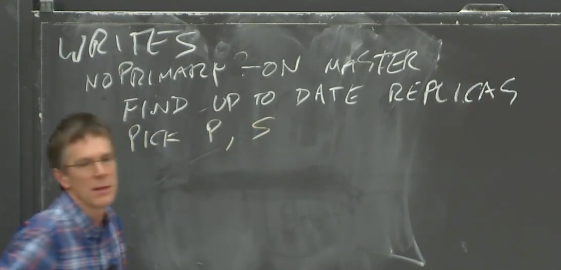 WRITES
NO PRIMARY - ON MASTER
FIND UP TO DATE REPLICAS
PICK P, S